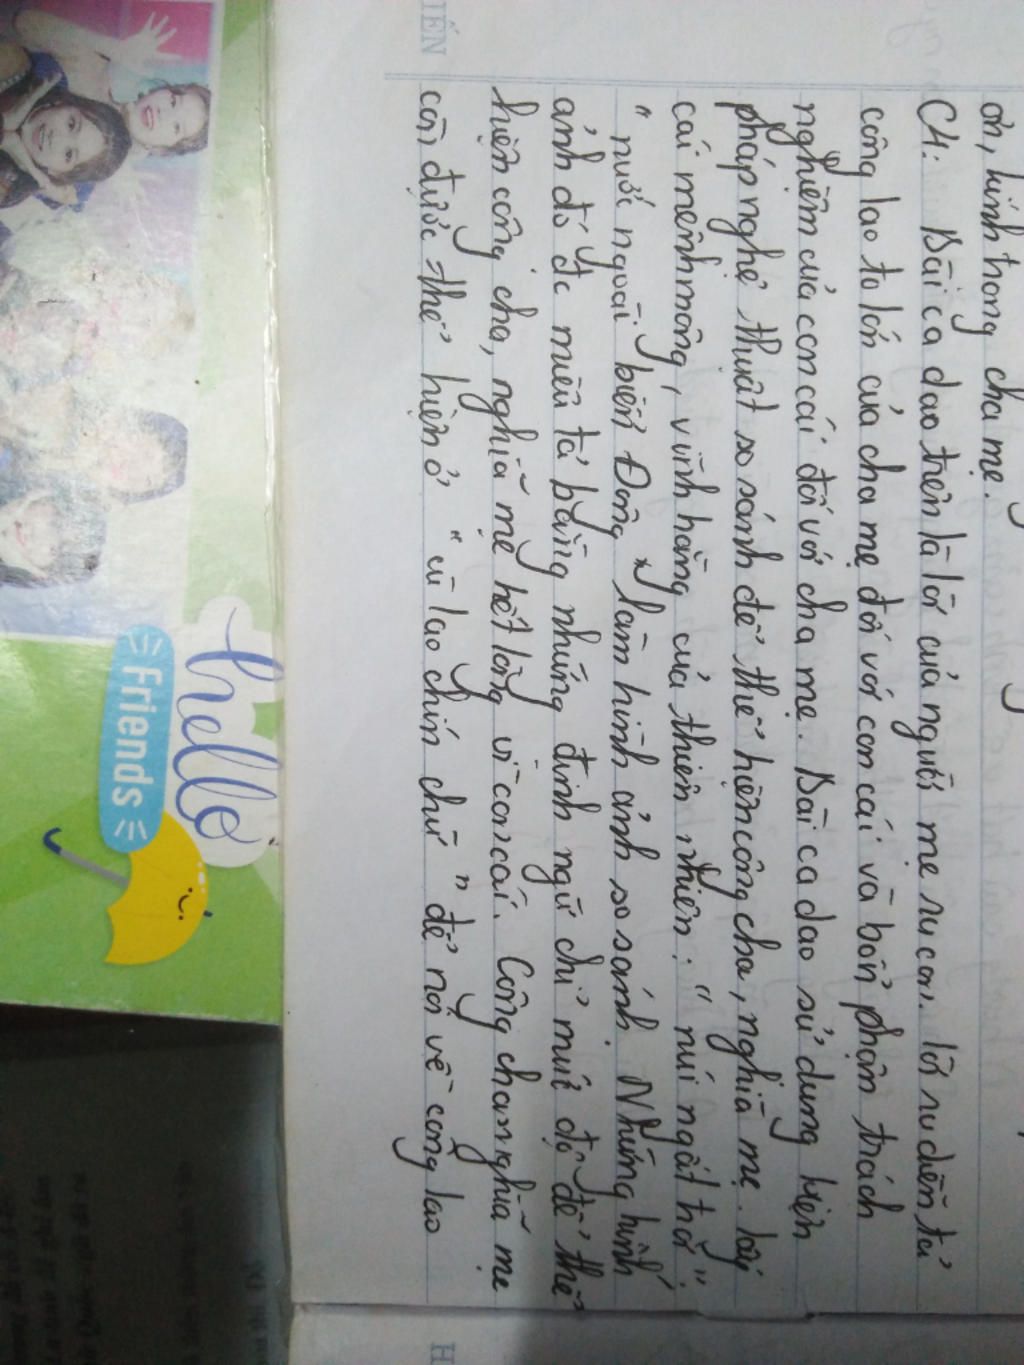 ơn, kính trọng cha mẹ.
C4: Bài ca dao trên là lời của người mẹ ru con. lời ru diễn tả
công lao to lớn của cha mẹ đối với con cái và bổn phận trách
nghiệm của con cái đối với cha mẹ. Bài ca dao sử dụng biện
pháp nghệ thuật so sánh để thể hiện công cha, nghĩa mẹ. lấy
cái mênh mông, vĩnh hằng của thiên nhiên: "núi ngất trời";
"nước ngoài biển Đông" làm hình ảnh so sánh. Những hình
ảnh đó đc miêu tả bằng những định ngữ chỉ mức độ để thể
hiện công cha, nghĩa mẹ hết lòng vì con cái. Công cha nghĩa mẹ
còn được thể hiện ở "cù lao chín chữ" để nói về công lao
IẾN
hello
Friends
H